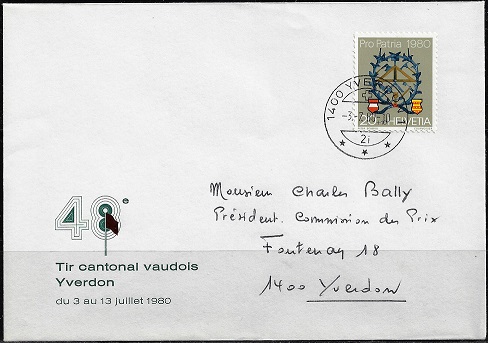 Pro Patria 1980
20 HELVETIA
1400 YVER
2i
48e
Tir cantonal vaudois
Yverdon
du 3 au 13 juillet 1980
Monsieur Charles Bally
Président. Commission des Prix
Fontenay 18
1400 Yverdon